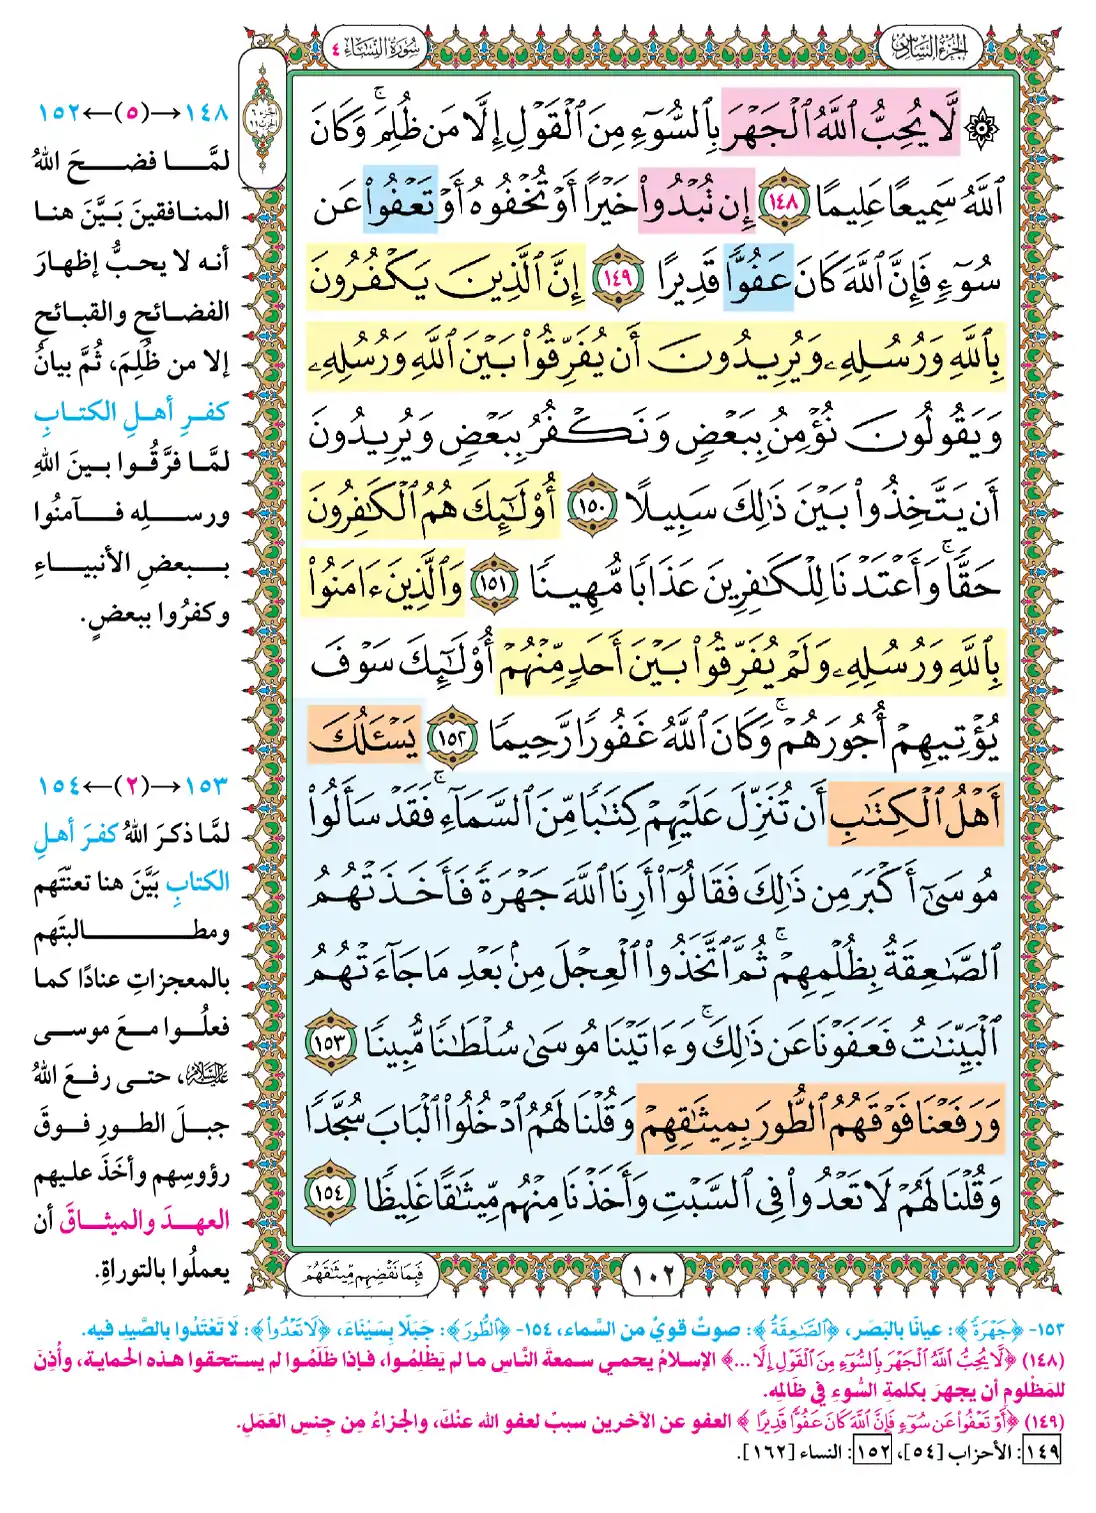 الجزء السادس
سورة النساء ٤
۞ لَّا يُحِبُّ ٱللَّهُ ٱلْجَهْرَ بِٱلسُّوٓءِ مِنَ ٱلْقَوْلِ إِلَّا مَن ظُلِمَ ۚ وَكَانَ
ٱللَّهُ سَمِيعًا عَلِيمًا ١٤٨ إِن تُبْدُوا۟ خَيْرًا أَوْ تُخْفُوهُ أَوْ تَعْفُوا۟ عَن
سُوٓءٍ فَإِنَّ ٱللَّهَ كَانَ عَفُوًّا قَدِيرًا ١٤٩ إِنَّ ٱلَّذِينَ يَكْفُرُونَ
بِٱللَّهِ وَرُسُلِهِۦ وَيُرِيدُونَ أَن يُفَرِّقُوا۟ بَيْنَ ٱللَّهِ وَرُسُلِهِۦ
وَيَقُولُونَ نُؤْمِنُ بِبَعْضٍ وَنَكْفُرُ بِبَعْضٍ وَيُرِيدُونَ
أَن يَتَّخِذُوا۟ بَيْنَ ذَٰلِكَ سَبِيلًا ١٥٠ أُو۟لَٰٓئِكَ هُمُ ٱلْكَٰفِرُونَ
حَقًّا ۚ وَأَعْتَدْنَا لِلْكَٰفِرِينَ عَذَابًا مُّهِينًا ١٥١ وَٱلَّذِينَ ءَامَنُوا۟
بِٱللَّهِ وَرُسُلِهِۦ وَلَمْ يُفَرِّقُوا۟ بَيْنَ أَحَدٍ مِّنْهُمْ أُو۟لَٰٓئِكَ سَوْفَ
يُؤْتِيهِمْ أُجُورَهُمْ ۗ وَكَانَ ٱللَّهُ غَفُورًا رَّحِيمًا ١٥٢ يَسْـَٔلُكَ
أَهْلُ ٱلْكِتَٰبِ أَن تُنَزِّلَ عَلَيْهِمْ كِتَٰبًا مِّنَ ٱلسَّمَآءِ ۚ فَقَدْ سَأَلُوا۟
مُوسَىٰٓ أَكْبَرَ مِن ذَٰلِكَ فَقَالُوٓا۟ أَرِنَا ٱللَّهَ جَهْرَةً فَأَخَذَتْهُمُ
ٱلصَّٰعِقَةُ بِظُلْمِهِمْ ۚ ثُمَّ ٱتَّخَذُوا۟ ٱلْعِجْلَ مِنۢ بَعْدِ مَا جَآءَتْهُمُ
ٱلْبَيِّنَٰتُ فَعَفَوْنَا عَن ذَٰلِكَ ۚ وَءَاتَيْنَا مُوسَىٰ سُلْطَٰنًا مُّبِينًا ١٥٣
وَرَفَعْنَا فَوْقَهُمُ ٱلطُّورَ بِمِيثَٰقِهِمْ وَقُلْنَا لَهُمُ ٱدْخُلُوا۟ ٱلْبَابَ سُجَّدًا
وَقُلْنَا لَهُمْ لَا تَعْدُوا۟ فِى ٱلسَّبْتِ وَأَخَذْنَا مِنْهُم مِّيثَٰقًا غَلِيظًا ١٥٤
١٠٢
فَبِمَا نَقْضِهِم مِّيثَٰقَهُمْ
١٤٨→(٥)←١٥٢
لمَّا فضحَ اللهُ
المنافقينَ بَيَّنَ هنا
أنه لا يحبُّ إظهارَ
الفضائحِ والقبائحِ
إلا من ظُلِمَ، ثُمَّ بيانُ
كفرِ أهلِ الكتابِ
لمَّا فرَّقُوا بينَ اللهِ
ورسلِه فآمنُوا
ببعضِ الأنبياءِ
وكفرُوا ببعضٍ.
١٥٣→(٢)←١٥٤
لمَّا ذكرَ اللهُ كفرَ أهلِ
الكتابِ بَيَّنَ هنا تعنّتَهم
ومطالبتَهم
بالمعجزاتِ عنادًا كما
فعلُوا معَ موسى
عليه السلام، حتى رفعَ اللهُ
جبلَ الطورِ فوقَ
رؤوسِهم وأخَذَ عليهم
العهدَ والميثاقَ أن
يعملُوا بالتوراةِ.
١٥٣- ﴿جَهْرَةً﴾: عيانًا بالبَصَر، ﴿ٱلصَّٰعِقَةُ﴾: صوتٌ قويٌ من السَّماء، ١٥٤- ﴿ٱلطُّورَ﴾: جَبَلًا بِسَيْنَاءَ، ﴿لَا تَعْدُوا۟﴾: لَا تَعْتَدُوا بالصَّيدِ فيه.
(١٤٨) ﴿لَّا يُحِبُّ ٱللَّهُ ٱلْجَهْرَ بِٱلسُّوٓءِ مِنَ ٱلْقَوْلِ إِلَّا ...﴾ الإسلامُ يحمي سمعةَ النَّاسِ ما لم يَظْلِمُوا، فإذا ظَلَمُوا لم يستحقوا هذه الحماية، وأُذِنَ
للمَظْلومِ أن يجهرَ بكلمةِ السُّوءِ في ظَالِمِه.
(١٤٩) ﴿أَوْ تَعْفُوا۟ عَن سُوٓءٍ فَإِنَّ ٱللَّهَ كَانَ عَفُوًّا قَدِيرًا﴾ العفو عن الآخرين سببٌ لعفو الله عنْكَ، والجزاءُ مِن جِنسِ العَمَلِ.
١٤٩: الأحزاب [٥٤]، ١٥٢: النساء [١٦٢].